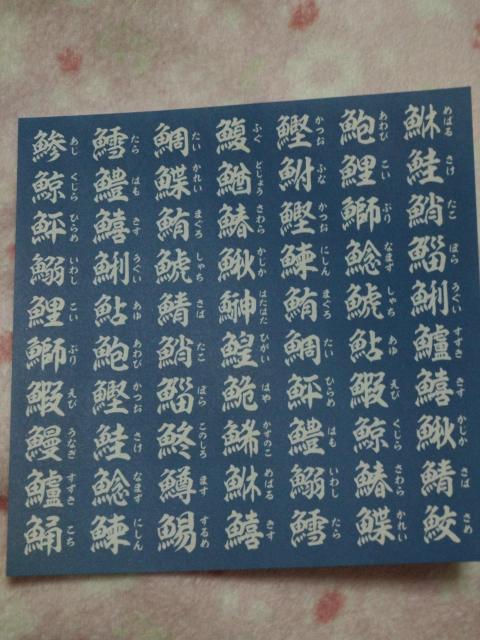 鮴めばる 鮭さけ 鮹たこ 鯔ぼら 鯏うぐい 鱸すずき 鱚きす 鰍かじか 鯖さば 鮫さめ
鮑あわび 鯉こい 鰤ぶり 鯰なまず 鯱しゃち 鮎あゆ 鰕えび 鯨くじら 鰆さわら 鰈かれい
鰹かつお 鮒ふな 鰹かつお 鰊にしん 鮪まぐろ 鯛たい 鮃ひらめ 鱧はも 鰯いわし 鱈たら
鰒ふぐ 鰌どじょう 鰆さわら 鰍かじか 鰰はたはた 鰉ひがい 鮠はや 鯑かずのこ 鮴めばる 鱚きす
鯛たい 鰈かれい 鮪まぐろ 鯱しゃち 鯖さば 鮹たこ 鯔ぼら 鮗このしろ 鱒ます 鯣するめ
鱈たら 鱧はも 鱚きす 鯏うぐい 鮎あゆ 鮑あわび 鰹かつお 鮭さけ 鯰なまず 鰊にしん
鯵あじ 鯨くじら 鮃ひらめ 鰯いわし 鯉こい 鰤ぶり 鰕えび 鰻うなぎ 鱸すずき 鯒こち